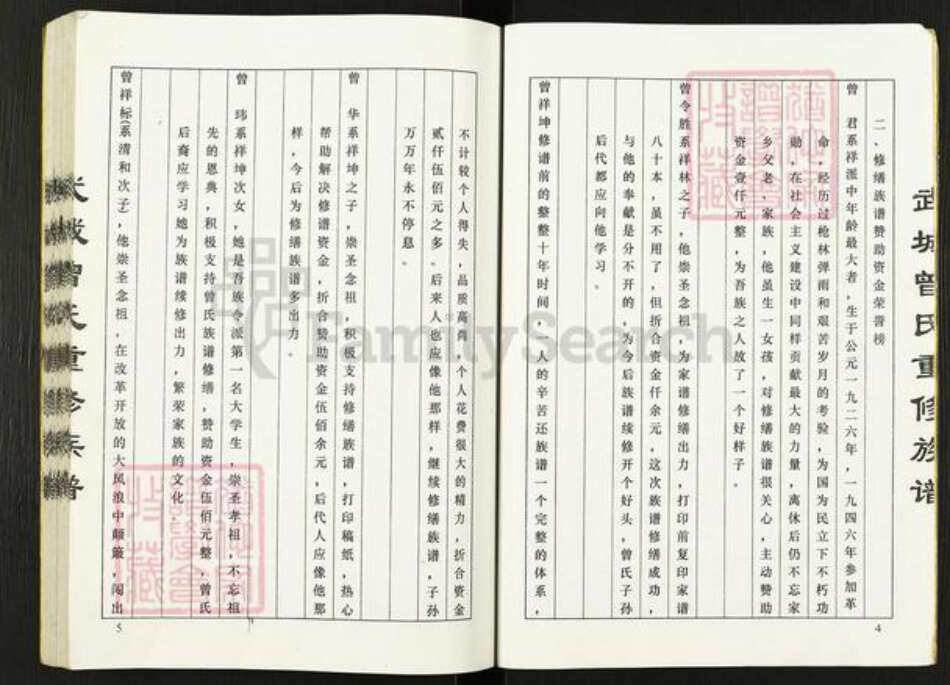 武城曾氏重修族谱
二、修缮族谱赞助资金荣誉榜
曾　君系祥派中年龄最大者，生于公元一九二六年，一九四六年参加革
命，经历过枪林弹雨和艰苦岁月的考验，为国为民立下不朽功
勋，在社会主义建设中同样贡献最大的力量，离休后仍不忘家
乡父老、家族，他虽生一女孩，对修缮族谱很关心，主动赞助
资金壹仟元整，为吾族之人放了一个好样子。
曾令胜系祥林之子，他崇圣念祖，为家谱修缮出力，打印前复印家谱
八十本，虽不用了，但折合资金仟余元，这次族谱修缮成功，
与他的奉献是分不开的，为今后族谱续修开个好头，曾氏子孙
后代都应向他学习。
曾祥坤修谱前的整整十年时间，一人的辛苦还族谱一个完整的体系，
4
不计较个人得失，品质高尚，个人花费很大的精力，折合资金
贰仟伍佰元之多。后来人也应像他那样，继续修缮族谱，子孙
万万年永不停息。
曾　华系祥坤之子，崇圣念祖，积极支持修缮族谱，打印稿纸，热心
帮助解决修谱资金，折合赞助资金伍佰余元，后代人应像他那
样，今后为修缮族谱多出力。
曾　玮系祥坤次女，她是吾族令派第一名大学生，崇圣孝祖，不忘祖
先的恩典，积极支持曾氏族谱修缮，赞助资金伍佰元整，曾氏
后裔应学习她为族谱续修出力，繁荣家族的文化。
曾祥标（系清和次子），他崇圣念祖，在改革开放的大风浪中颠簸，闯出
5
武城曾氏重修族谱
FamilySearch